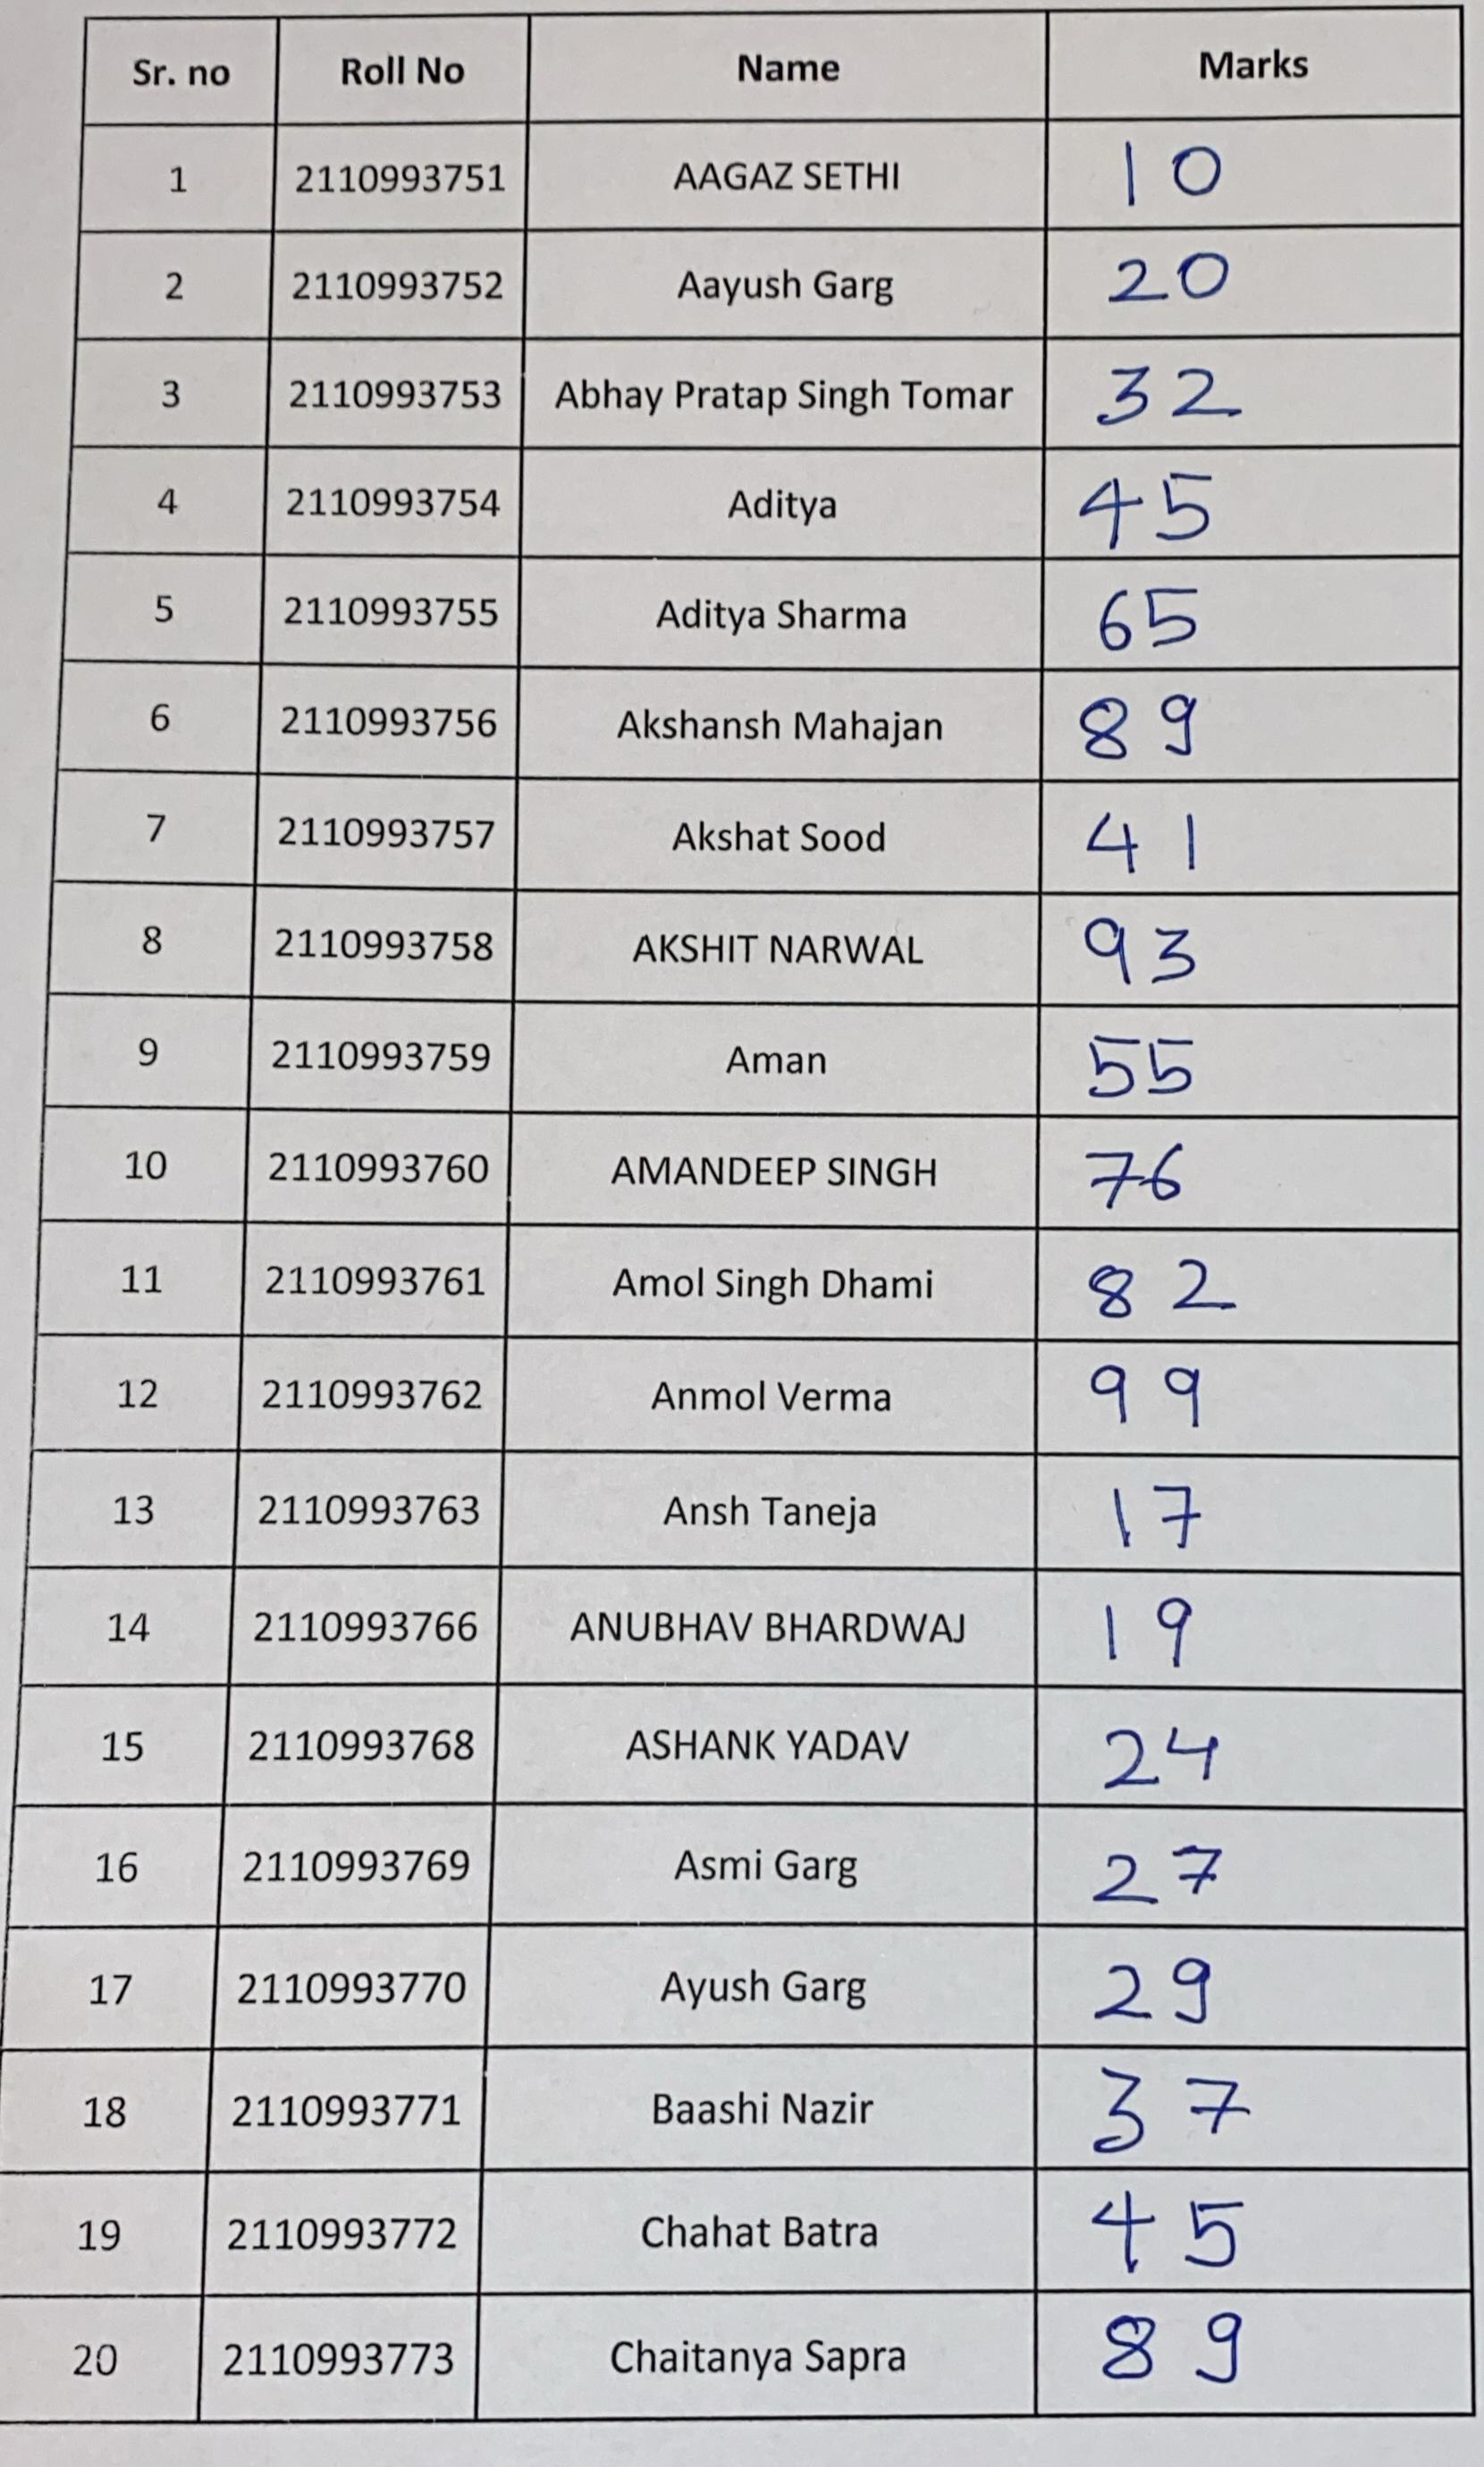 Sr. no Roll No Name Marks
1 2110993751 AAGAZ SETHI 10
2 2110993752 Aayush Garg 20
3 2110993753 Abhay Pratap Singh Tomar 32
4 2110993754 Aditya 45
5 2110993755 Aditya Sharma 65
6 2110993756 Akshansh Mahajan 89
7 2110993757 Akshat Sood 41
8 2110993758 AKSHIT NARWAL 93
9 2110993759 Aman 55
10 2110993760 AMANDEEP SINGH 76
11 2110993761 Amol Singh Dhami 82
12 2110993762 Anmol Verma 99
13 2110993763 Ansh Taneja 17
14 2110993766 ANUBHAV BHARDWAJ 19
15 2110993768 ASHANK YADAV 24
16 2110993769 Asmi Garg 27
17 2110993770 Ayush Garg 29
18 2110993771 Baashi Nazir 37
19 2110993772 Chahat Batra 45
20 2110993773 Chaitanya Sapra 89